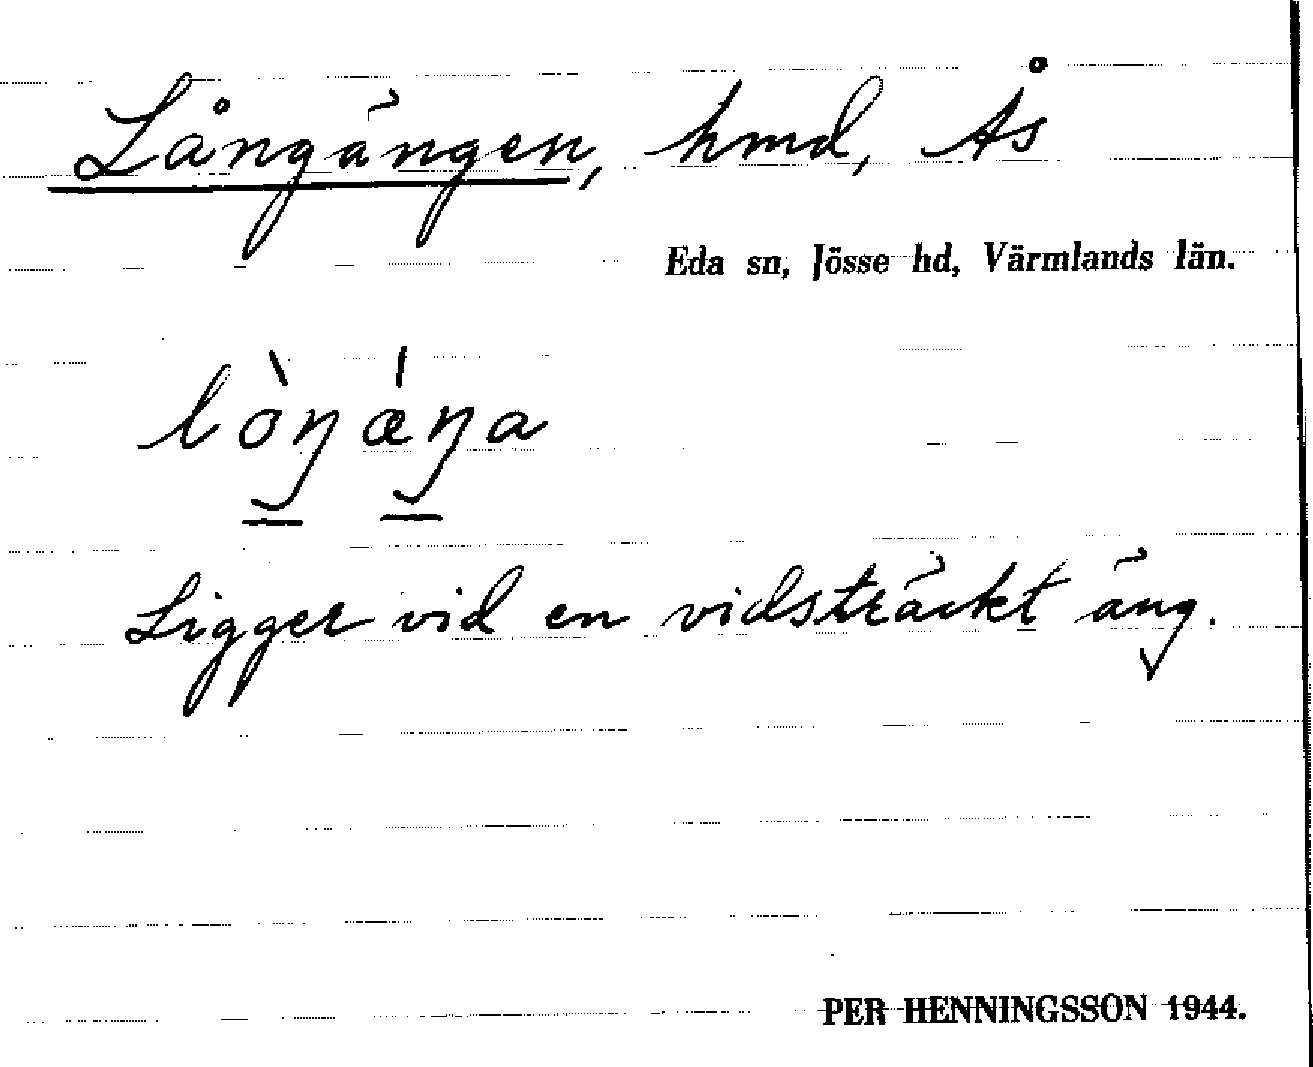 Långängen, hmd, Ås
Eda sn, Jösse hd, Värmlands län.
lòŋǽŋa
Ligger vid en vidsträckt äng.
PER HENNINGSSON 1944.